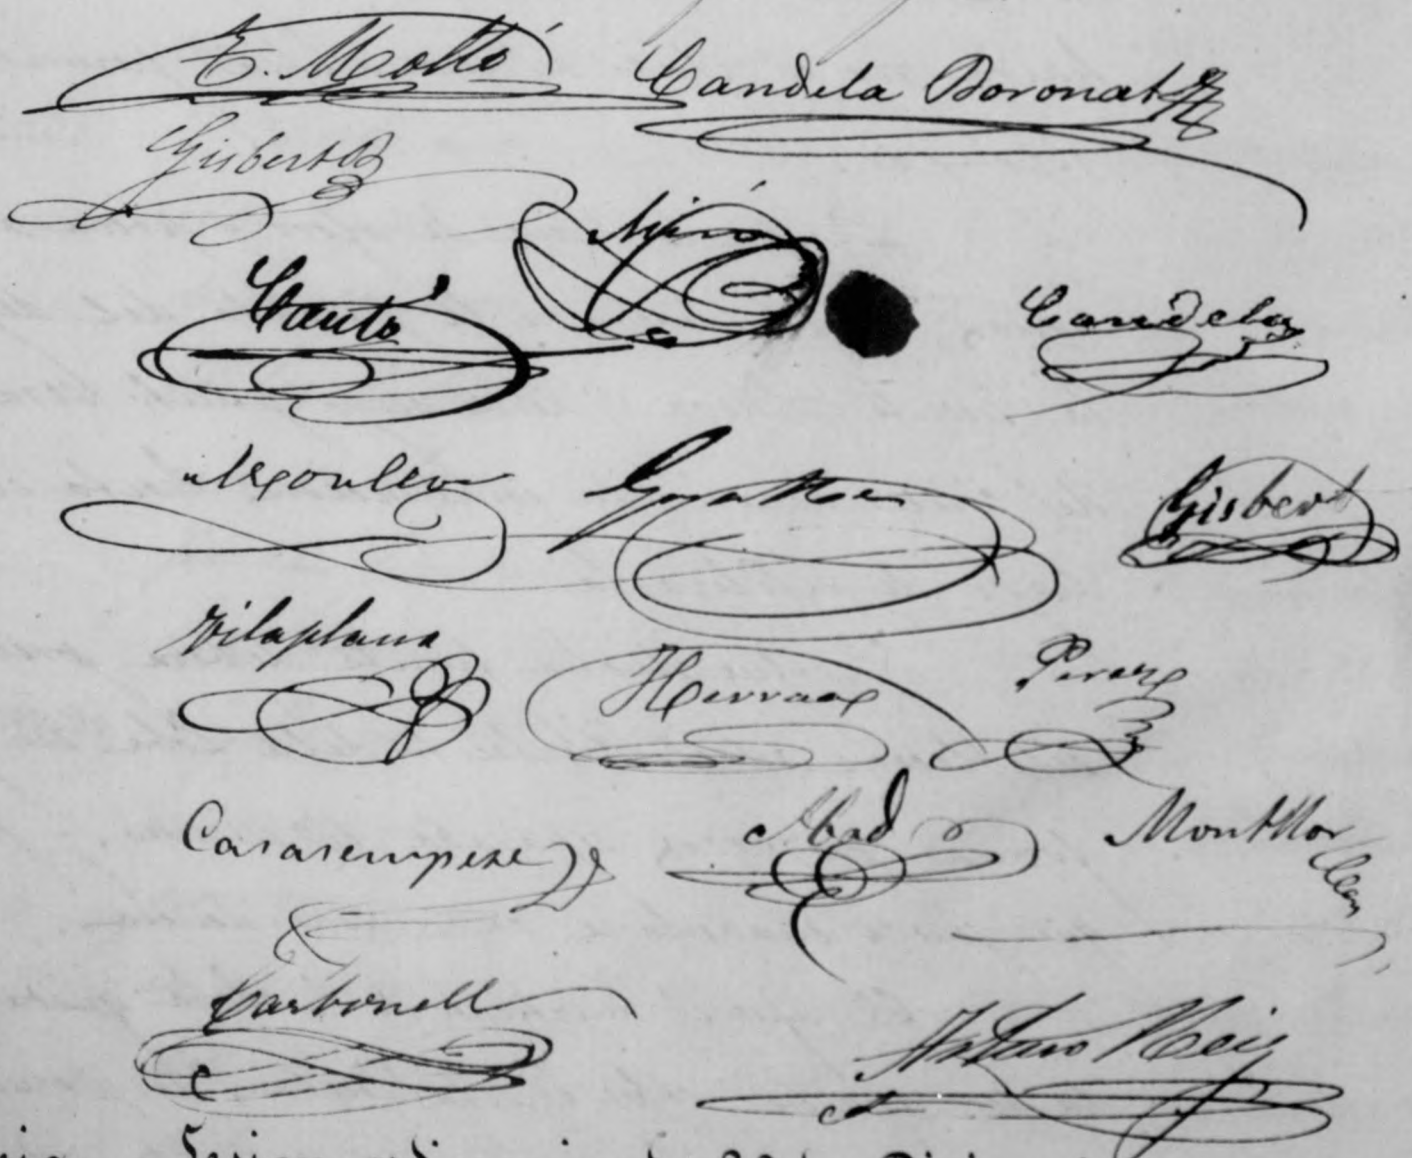 E. Moltó Candela Boronat
Gisbert
Miró
Cantó Candela
Monllor Gosalbez Gisbert
Vilaplana Herraez Perez
Casasempere Abad Montllor
Carbonell Arturo Reig